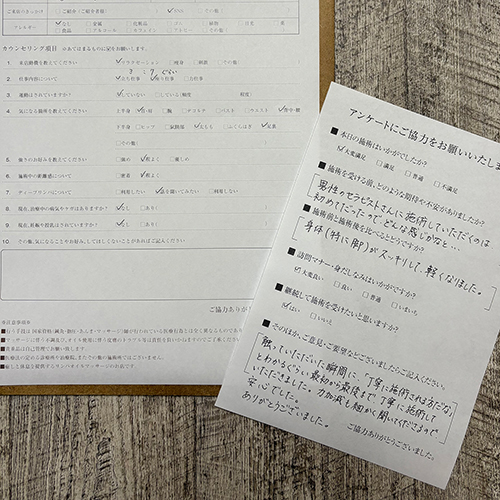 アレルギー
✓なし
□金属
□化粧品
□食品
□アルコール
□その他(
カウンセリング項目 ※あてはまるものに☑をお願いします。
1. 来店動機を教えてください ✓リラクゼーション □痩身 □刺激 □その他(
2. 仕事内容について ✓立ち仕事 ✓座り仕事 □力仕事
3. 運動はされていますか? ✓していない □している(頻度 時間
4. 気になる箇所を教えてください 上半身 ✓首・肩 □腕 □デコルテ □バスト □ウエスト ✓背中・腰
下半身 □ヒップ □鼠蹊部 ✓太もも □ふくらはぎ ✓足裏
□その他(
5. 強さのお好みを教えてください □強め ✓程よく □優しめ
6. 施術中の距離感について □密着 ✓程よく
7. ディープリンパについて □利用したい ✓話を聞いてみたい □利用しない
8. 現在、治療中の病気やケガはありますか? ✓なし □あり(
9. 現在、妊娠や授乳はされていますか? ✓なし □あり(
10. その他、気になることやお好み、してほしくないことがあればご記入ください
ご協力ありが
アンケートにご協力をお願いいたしま
■ 本日の施術はいかがでしたか?
✓大変満足 □満足 □普通 □不満足
■ 施術を受ける前、どのような期待や不安がありましたか?
男性のセラピストさんに施術していただくのは
初めてだったので、どんな感じかなと…
■ 施術前と施術後を比べるとどうですか?
身体(特に脚)がスッキリして、軽くなりました。
■ 訪問マナー・身だしなみはいかがですか?
✓大変良い □良い □普通 □いまいち
■ 継続して施術を受けたいと思いますか?
✓はい □いいえ
■ そのほか、ご意見・ご要望などございましたらご記入ください。
触っていただいた瞬間に、「丁寧に施術される方だな」
とわかるぐらい最初から最後まで丁寧に施術して
いただきました。力加減も細かく聞いてくださるので、
安心でした。
ありがとうございました。
ご協力ありがとうございました。